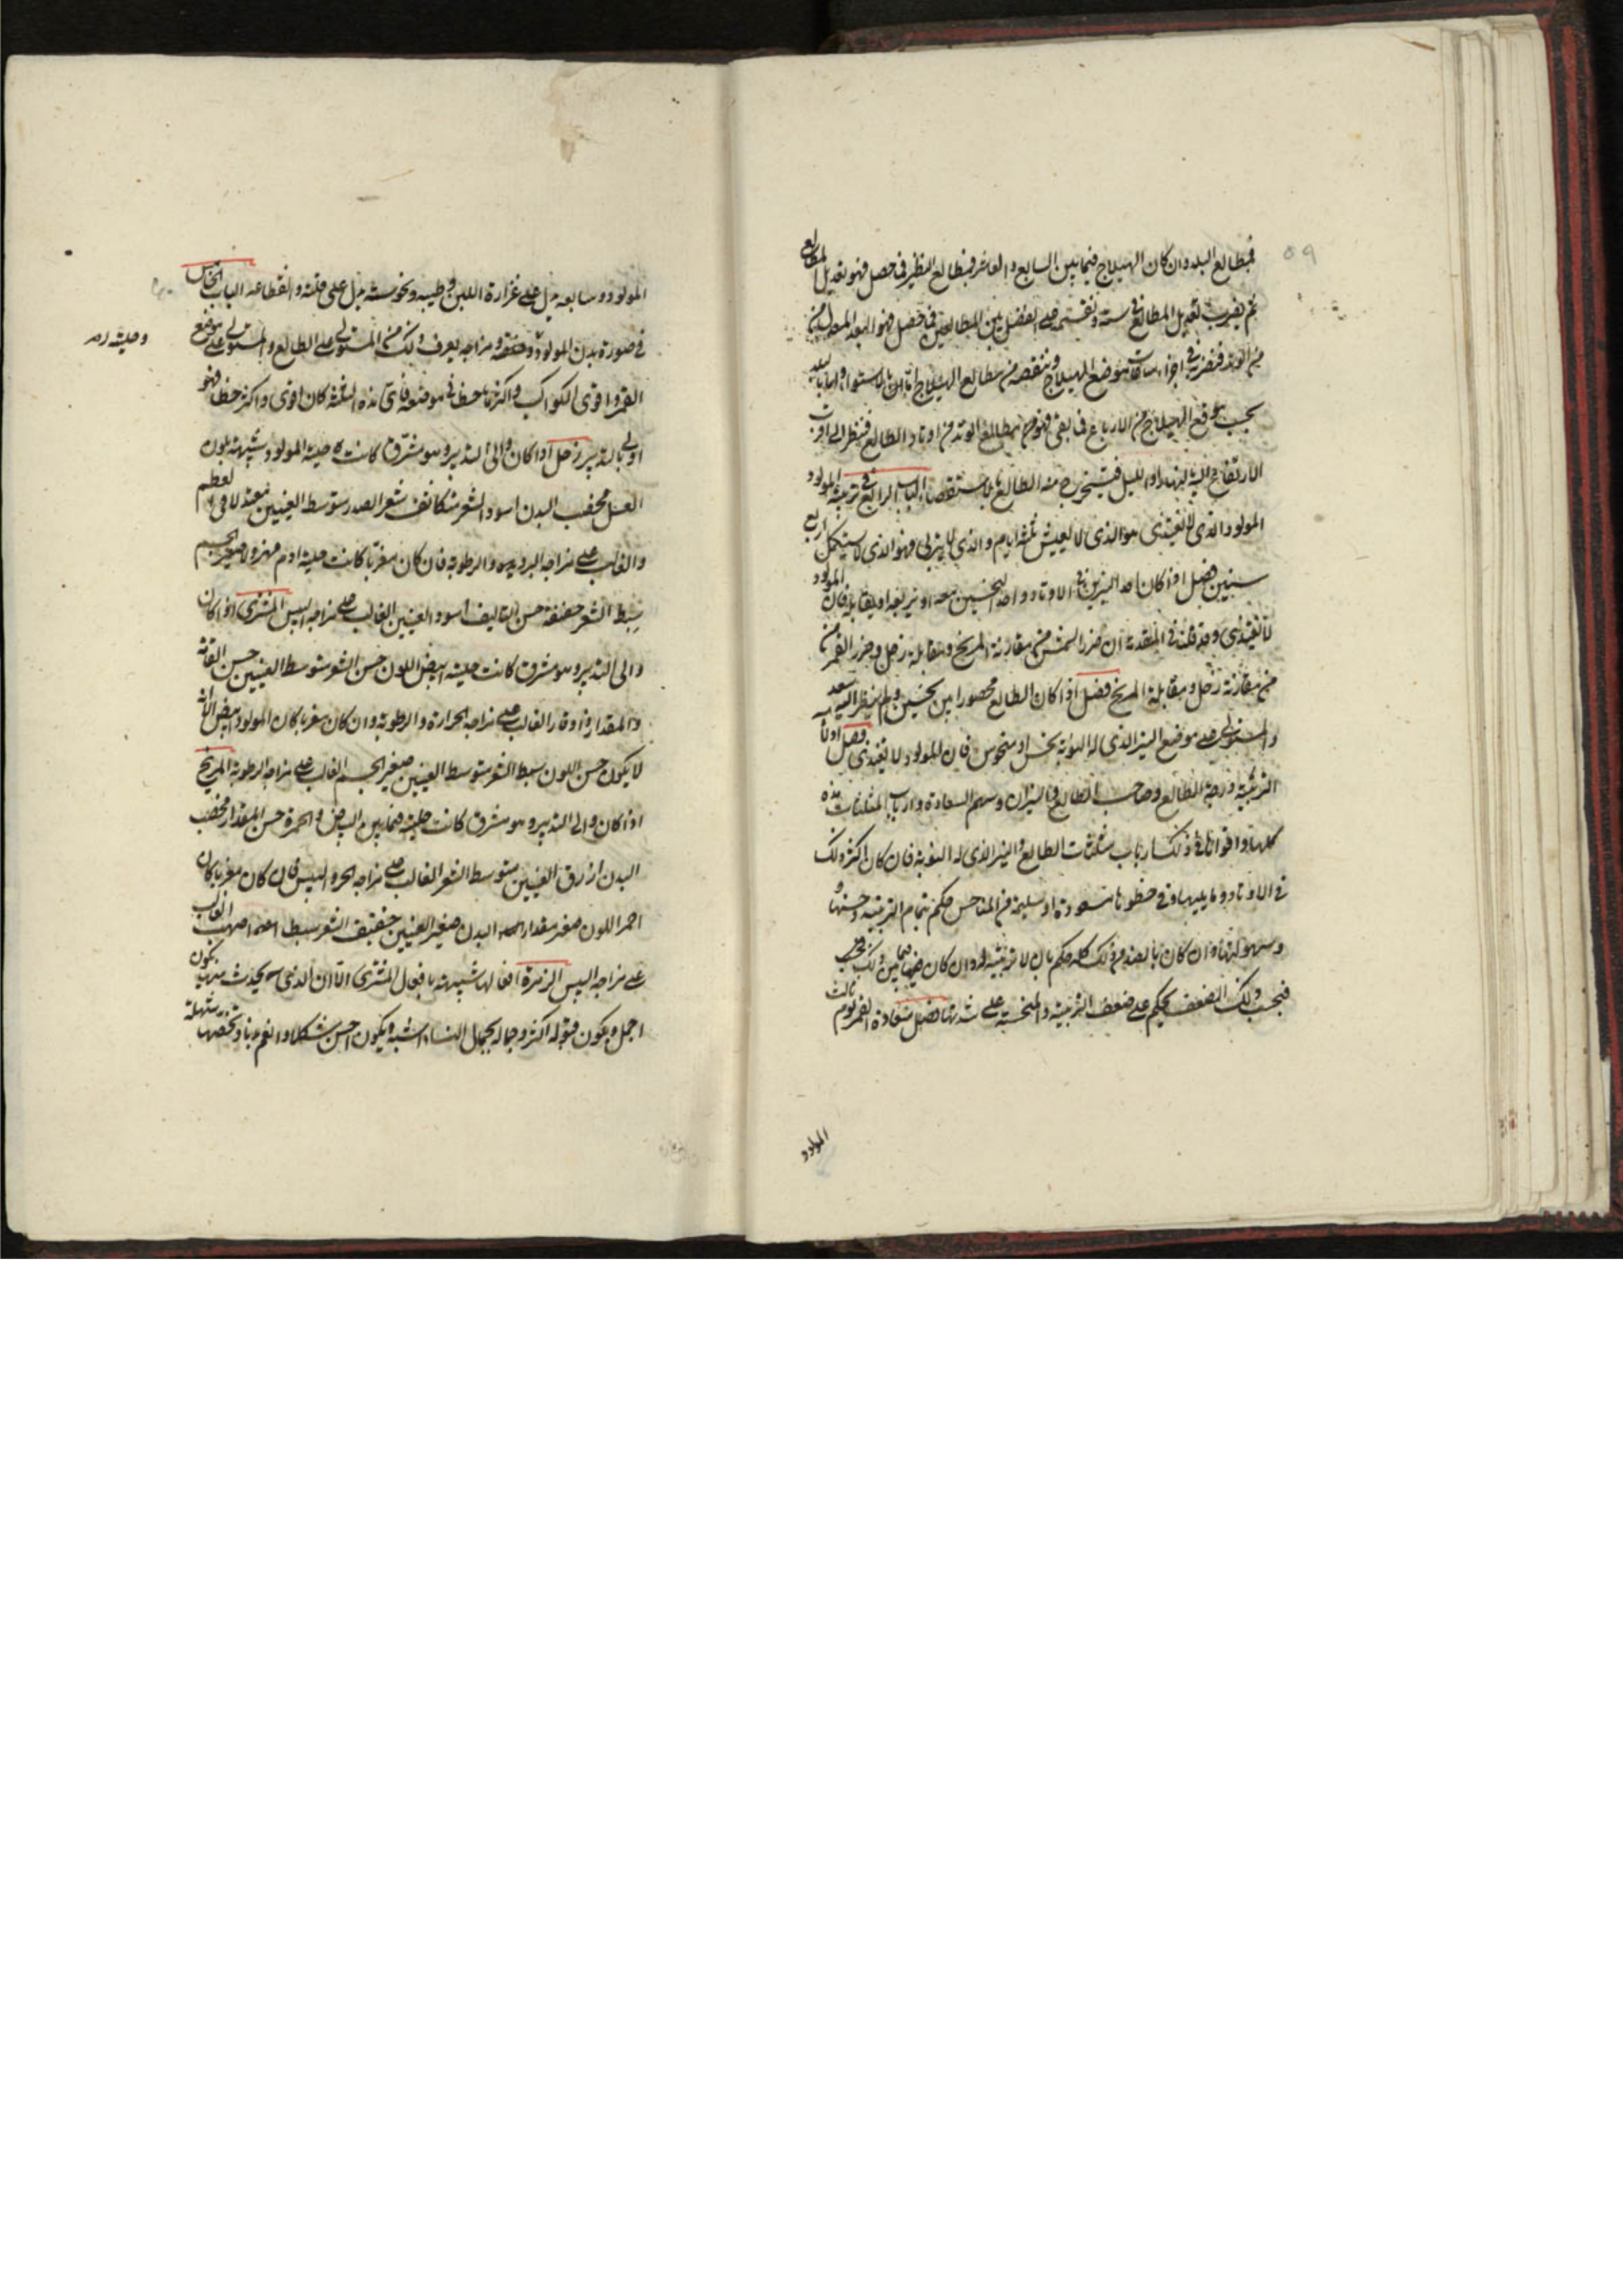 ٥٩
فبمطالع البلد وان كان الهيلاج فيما بين السابع والعاشر فبمطالع النظير فما حصل فهو تعديل المطالع
ثم يضرب تعديل المطالع في ستة ونقسمه على الفضل بين المطالعين فما حصل فهو البعد المعدل من
الوتد فنضربه في اجزاء ساعات موضع الهيلاج وننقصه من مطالع الهيلاج
بحسب موقع الهيلاج من الارباع فما بقى فهو مطالع الوتد من اوتاد الطالع فننظر الى
الارتفاع بالنهار او بالليل فيستخرج منه الطالع بالاستقصاء الباب الرابع في تربية المولود
المولود الذي لا يغتذى هو الذي لا يعيش ثلثة ايام والذي لا يتربى فهو الذي لا يستكمل اربع
سنين فصل اذا كان احد النيرين في الاوتاد واحد النحسين معه او يربعه او يقابله فان المولود
لا يغتذى وقد قلنا في المقدمة ان ضرر الشمس من مقارنة المريخ ومقابلة زحل وضرر القمر من
من مقارنة زحل ومقابلة المريخ فصل اذا كان الطالع محصورا بين نحسين ولم ينظر اليه سعد
والمستولى على موضع النير الذي له النوبة نحس او منحوس فان المولود لا يغتذى فصل
التربية درجة الطالع وصاحب الطالع والنيران وسهم السعادة وارباب المثلثات هذه
كلها واقواها في ذلك ارباب مثلثات الطالع والنير الذي له النوبة فان كان اكثر ذلك
في الاوتاد وما يليها وفي حظوظها مسعودة او سليمة من المناحس حكم بتمام التربية وحسنها و
وسهولتها وان كان بالضد من ذلك كله حكم بان لا تربية له وان كان فيما بين ذلك
فبحسب ذلك الضعف يحكم على ضعف التربية والمنحسة على شدتها فصل سعادة القمر ليوم ثالث
المولود
المولود وسابعه يدل على غزارة اللبن وطيبه ونحوسته يدل على قلته وانقطاعه الباب الخامس
في صورة بدن المولود وخلقه ومزاجه يعرف ذلك من المستولى على الطالع والمستولى على موضع
القمر واقوى الكواكب واكثرها حظا في موضعه فاى هذه الثلثة كان اقوى واكثر حظا فهو
اولى بالتدبير زحل اذا كان والى التدبير وهو مشرق كانت حلية المولود شبيهة بلون
العسل مخصب البدن اسود الشعر متكاثف شعر الصدر متوسط العينين معتدلا في العظم
والغالب على مزاجه البرودة والرطوبة فان كان مغربا كانت حلية ادم مهزولا صغير الجسم
سبط الشعر خفيفه حسن التاليف اسود العينين الغالب على مزاجه اليبس المشترى اذا كان
والى التدبير وهو مشرق كانت حليته ابيض اللون حسن الشعر متوسط العينين حسن القامة
والمقدار ذا وقار الغالب على مزاجه الحرارة والرطوبة وان كان مغربا كان المولود ابيض الا انه
لا يكون حسن اللون سبط الشعر متوسط العينين صغير الجسم الغالب على مزاجه الرطوبة المريخ
اذا كان والى التدبير وهو مشرق كانت حليته فيما بين البياض والحمرة حسن المقدار مخصب
البدن ازرق العينين متوسط الشعر الغالب على مزاجه الحر واليبس فان كان مغربا كان
احمر اللون صغير مقدار البدن صغير العينين خفيف الشعر سبط اصهب الغالب
على مزاجه اليبس الزهرة افعالها شبيهة بافعال المشترى الا ان الذي يحدث منها يكون
اجمل ويكون قبوله اكثر وجماله بجمال النساء اشبه ويكون احسن شكلا وانعم بدنا